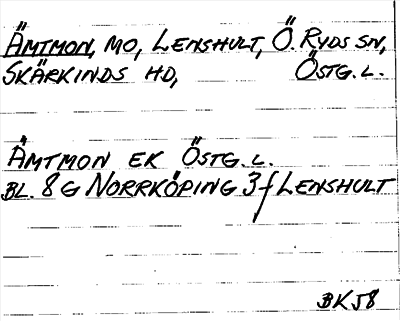 ÄMTMON, MO, LENSHULT, Ö. RYDS SN,
SKÄRKINDS HD, ÖSTG. L.
ÄMTMON EK ÖSTG. L.
BL. 8G NORRKÖPING 3f LENSHULT
BK58